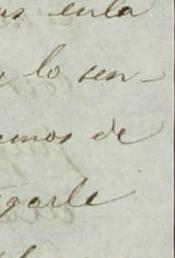 as enla
y lo sen-
amos de
garle